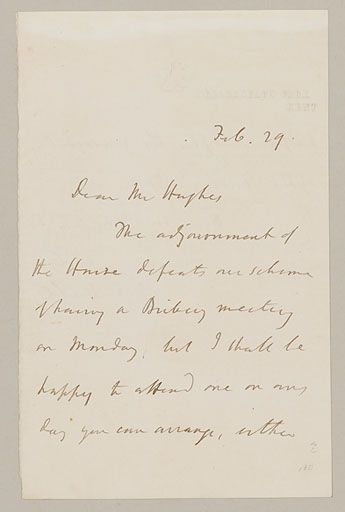 Feb. 29.
Dear Mr Hughes
The adjournment of
the House defeats our scheme
of having a Bribery meeting
on Monday, but I shall be
happy to attend one on any
day you can arrange, either